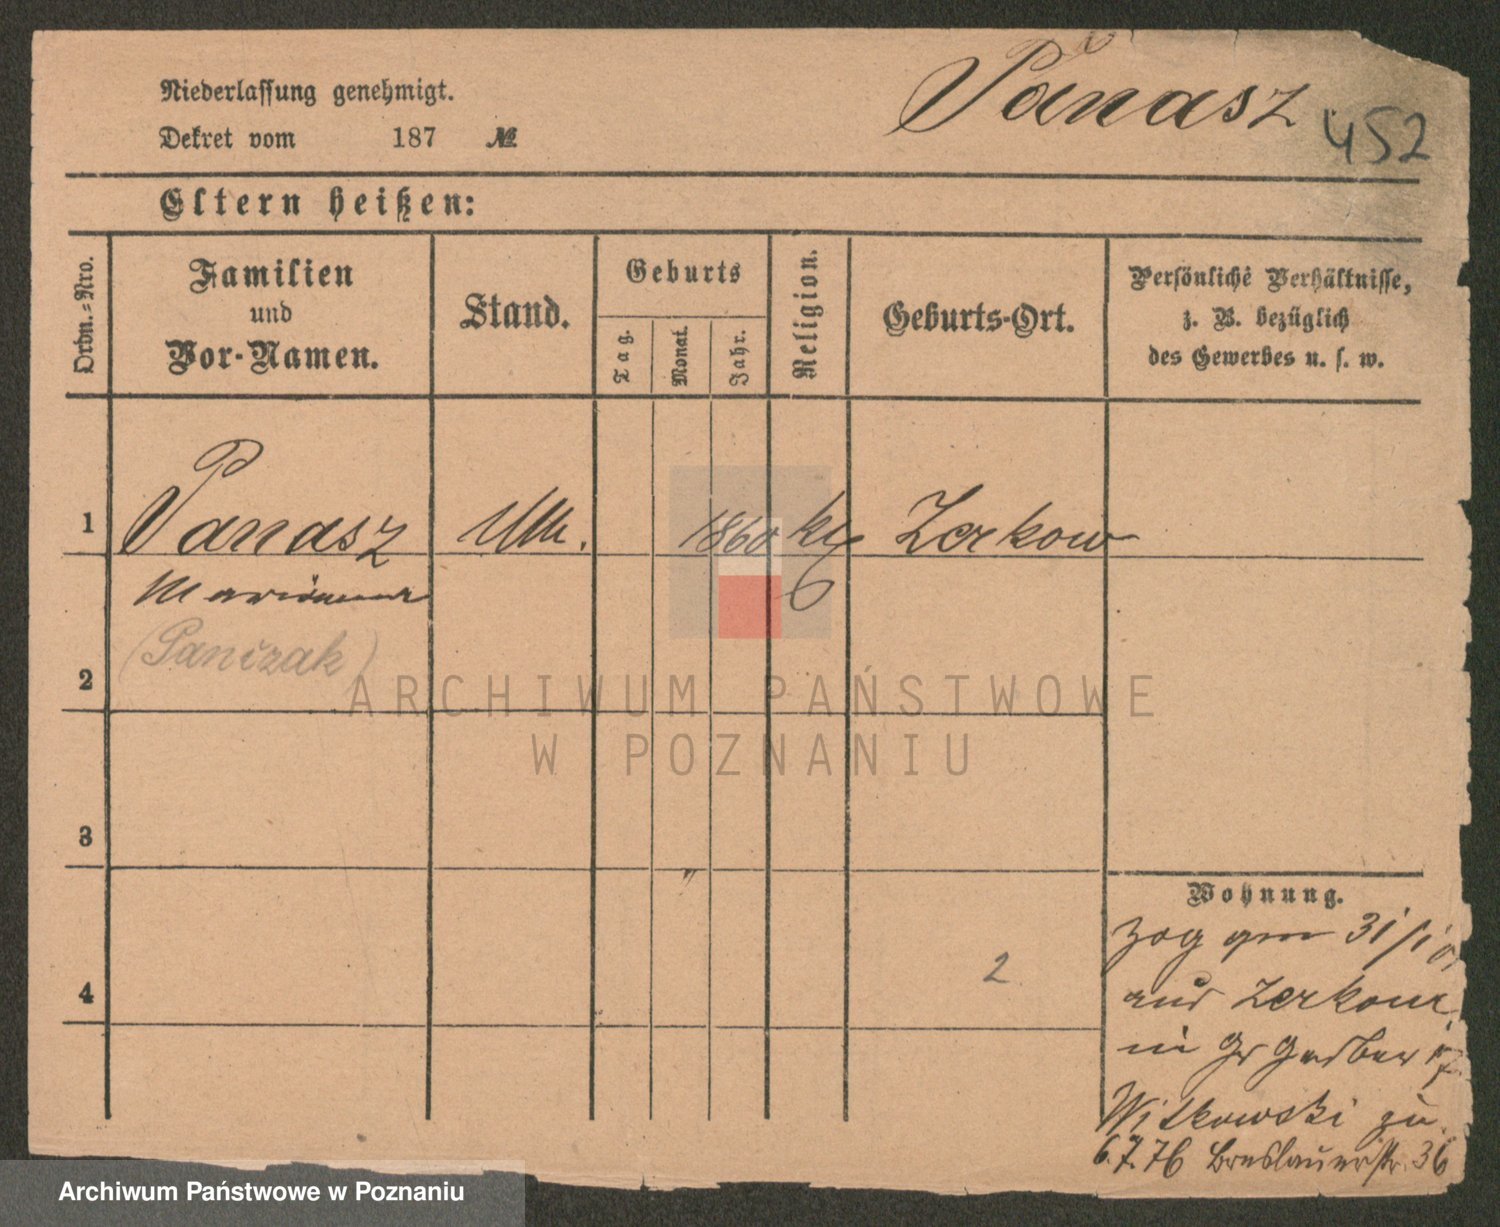 Niederlassung genehmigt.
Dekret vom 187 №
Panasz
452
Eltern heißen:
Ordn.-Nro.
Familien
und
Vor-Namen.
Stand.
Geburts
Tag.
Monat.
Jahr.
Religion.
Geburts-Ort.
Persönliche Verhältnisse,
z. B. bezüglich
des Gewerbes u. s. w.
1 Panasz 1860 Zerkow
Marianna
(Panczak)
2
ARCHIWUM PAŃSTWOWE
W POZNANIU
3
Wohnung.
zog am 31/1
aus Zerkow
2
4
in Gr Gerber 17
Witkowski zu
6.7.76 Breslauerstr. 36
Archiwum Państwowe w Poznaniu